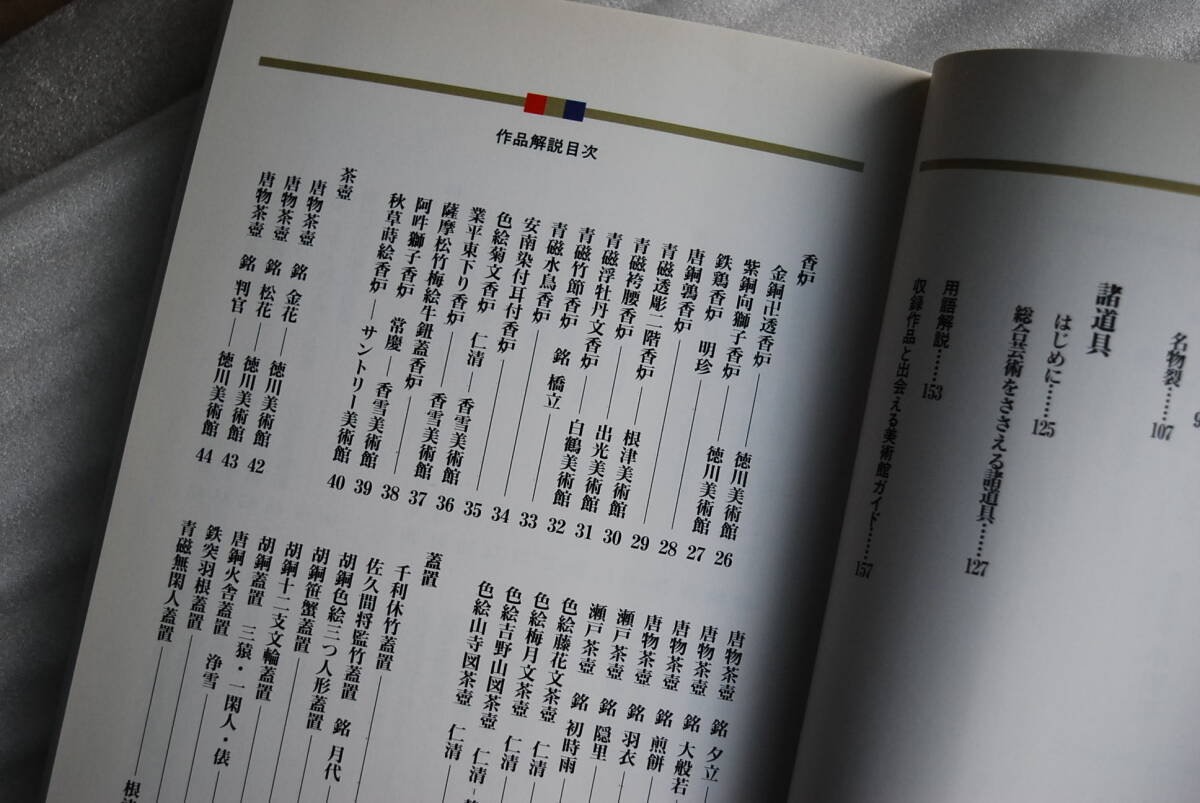 名物裂……107
諸道具
はじめに……125
総合芸術をささえる諸道具……127
用語解説……153
収録作品と出会える美術館ガイド……157
作品解説目次
香炉
金銅卍透香炉――徳川美術館 26
紫銅向獅子香炉――徳川美術館 27
鉄鶏香炉 明珍――28
唐銅鶉香炉――29
青磁透彫二階香炉――根津美術館 30
青磁袴腰香炉――出光美術館 31
青磁浮牡丹文香炉――白鶴美術館 32
青磁竹節香炉 銘 橋立――33
青磁水鳥香炉――34
安南染付耳付香炉――35
色絵菊文香炉 仁清――香雪美術館 36
業平東下り香炉――香雪美術館 37
薩摩松竹梅絵牛鈕蓋香炉――38
阿吽獅子香炉 常慶――香雪美術館 39
秋草蒔絵香炉――サントリー美術館 40
茶壺
唐物茶壺 銘 金花――徳川美術館 42
唐物茶壺 銘 松花――徳川美術館 43
唐物茶壺 銘 判官――徳川美術館 44
唐物茶壺 銘 夕立
唐物茶壺 銘 大般若
唐物茶壺 銘 煎餅
唐物茶壺 銘 羽衣
瀬戸茶壺 銘 隠里
瀬戸茶壺 銘 初時雨
色絵藤花文茶壺 仁清
色絵梅月文茶壺 仁清
色絵吉野山図茶壺 仁清
色絵山寺図茶壺 仁清
蓋置
千利休竹蓋置
佐久間将監竹蓋置 銘 月代
胡銅色絵三つ人形蓋置
胡銅笹蟹蓋置
胡銅十二支文輪蓋置
胡銅蓋置 三猿・一閑人・俵
唐銅火舎蓋置 浄雪
鉄突羽根蓋置
青磁無閑人蓋置――根